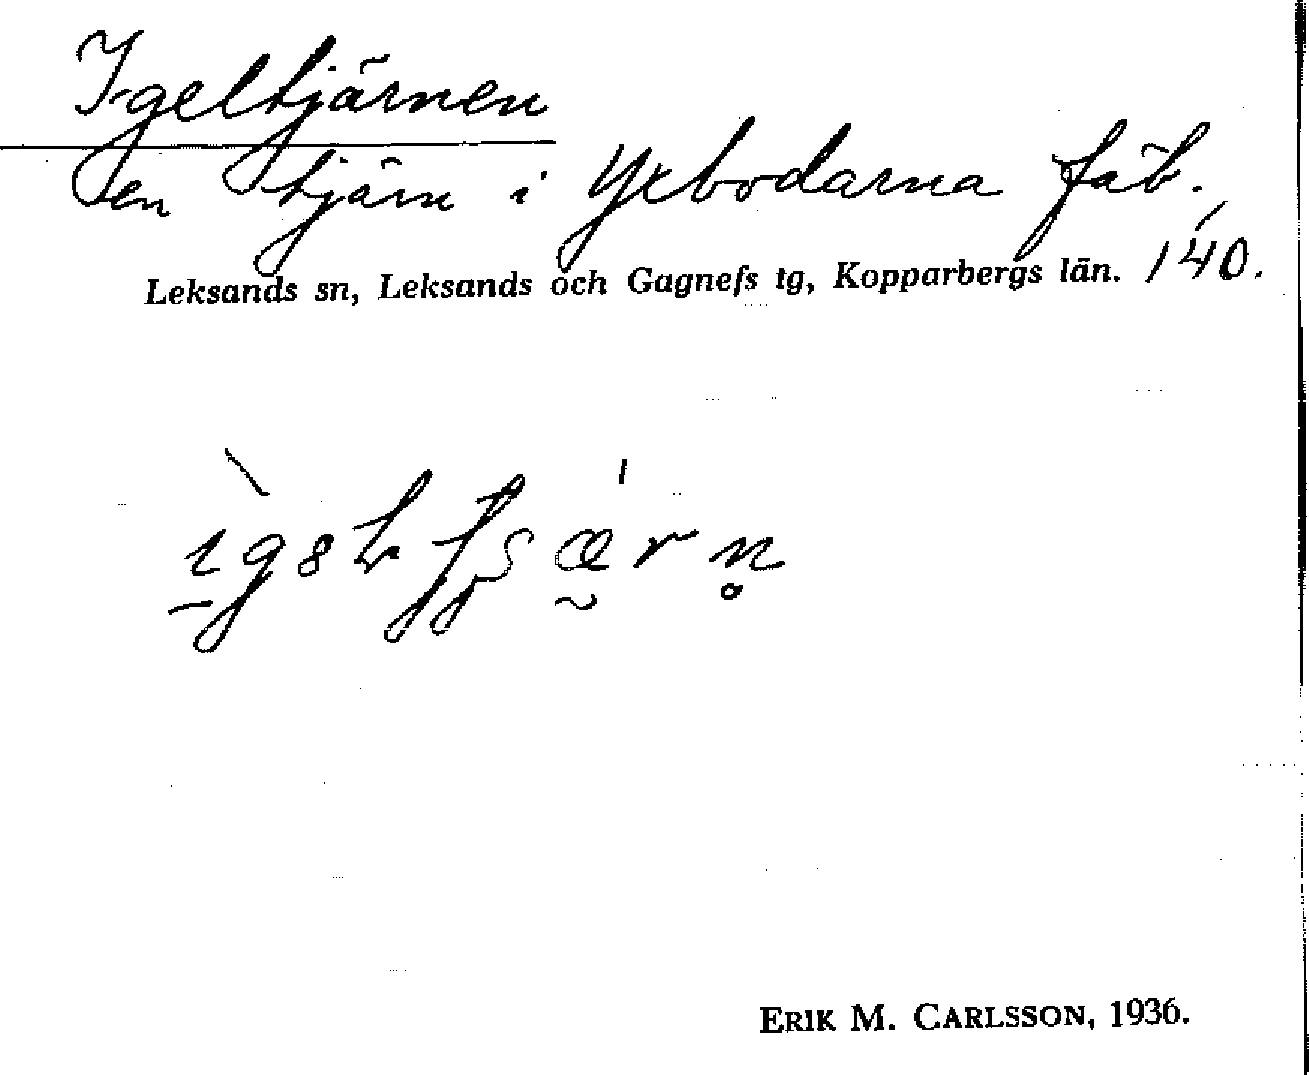 Igeltjärnen
en tjärn i Yxbodarna fäb.,
Leksands sn, Leksands och Gagnefs tg, Kopparbergs län. 140.
ERIK M. CARLSSON, 1936.